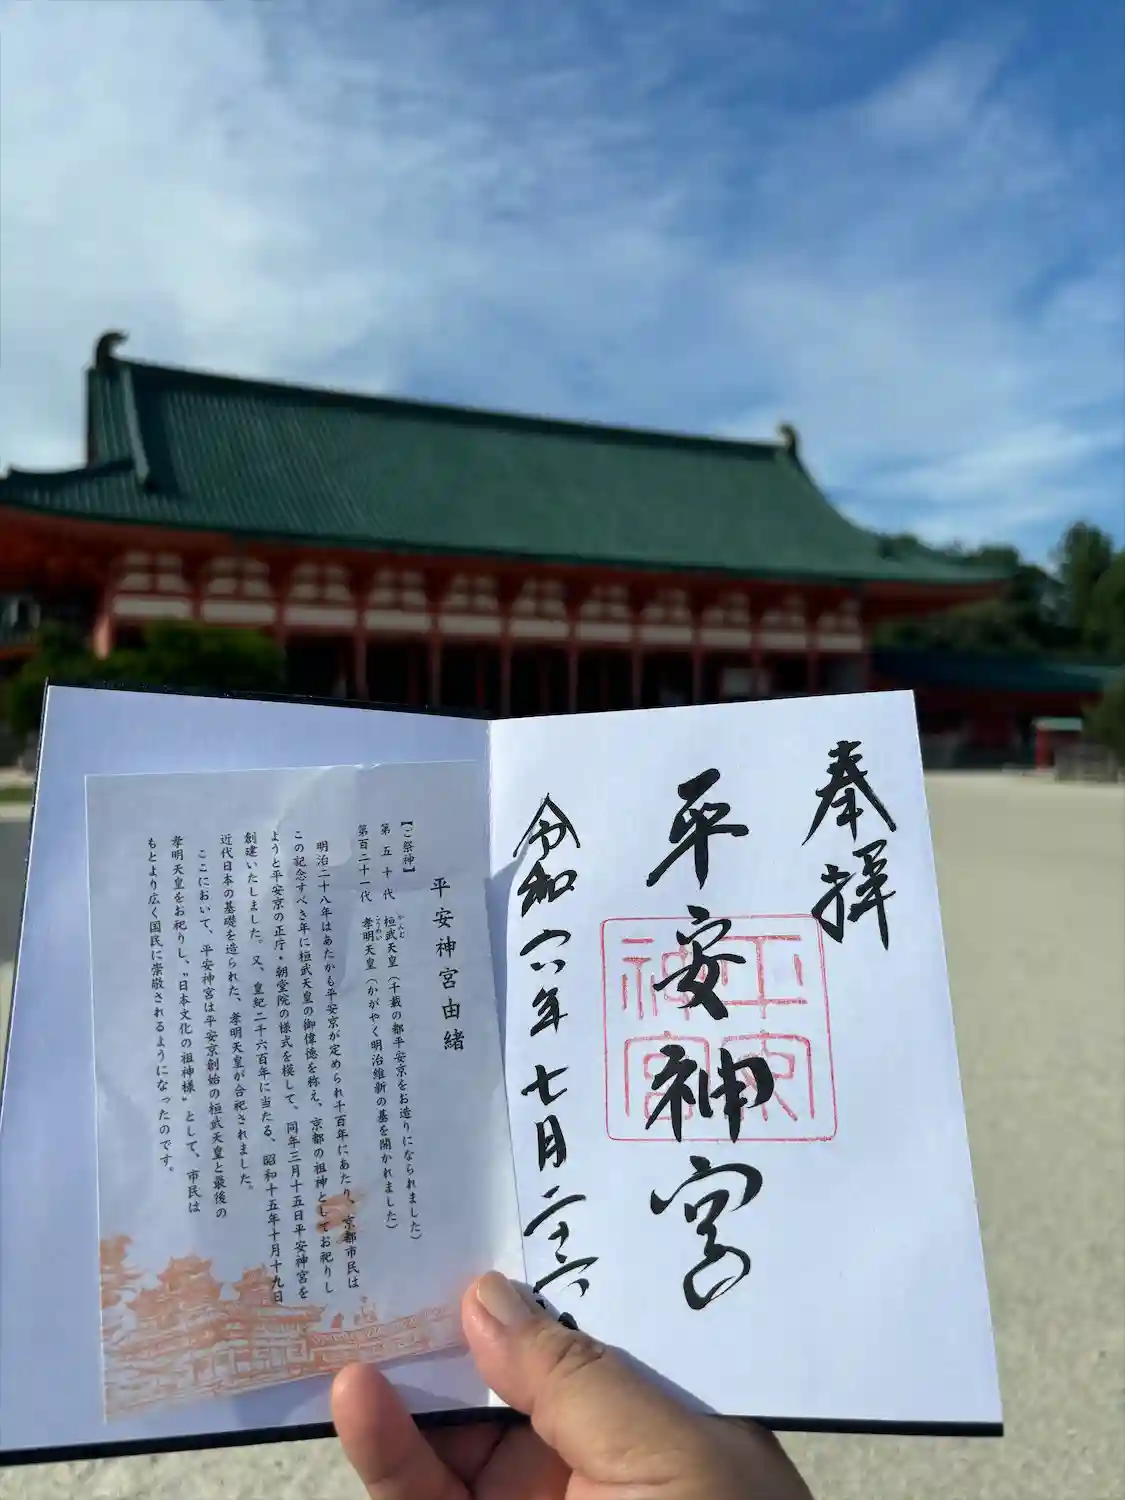 奉拝
平安神宮
平安神宮
令和六年七月二十六日
平安神宮由緒
【ご祭神】
第五十代 桓武天皇（千載の都平安京をお造りになられました）
かんむ
第百二十一代 孝明天皇（かがやく明治維新の基を開かれました）
こうめい
明治二十八年はあたかも平安京が定められ千百年にあたり、京都市民は
この記念すべき年に桓武天皇の御偉徳を称え、京都の祖神としてお祀りし
ようと平安京の正庁・朝堂院の様式を模して、同年三月十五日平安神宮を
創建いたしました。又、皇紀二千六百年に当たる、昭和十五年十月十九日
近代日本の基礎を造られた、孝明天皇が合祀されました。
ここにおいて、平安神宮は平安京創始の桓武天皇と最後の
孝明天皇をお祀りし、〝日本文化の祖神様〟として、市民は
もとより広く国民に崇敬されるようになったのです。